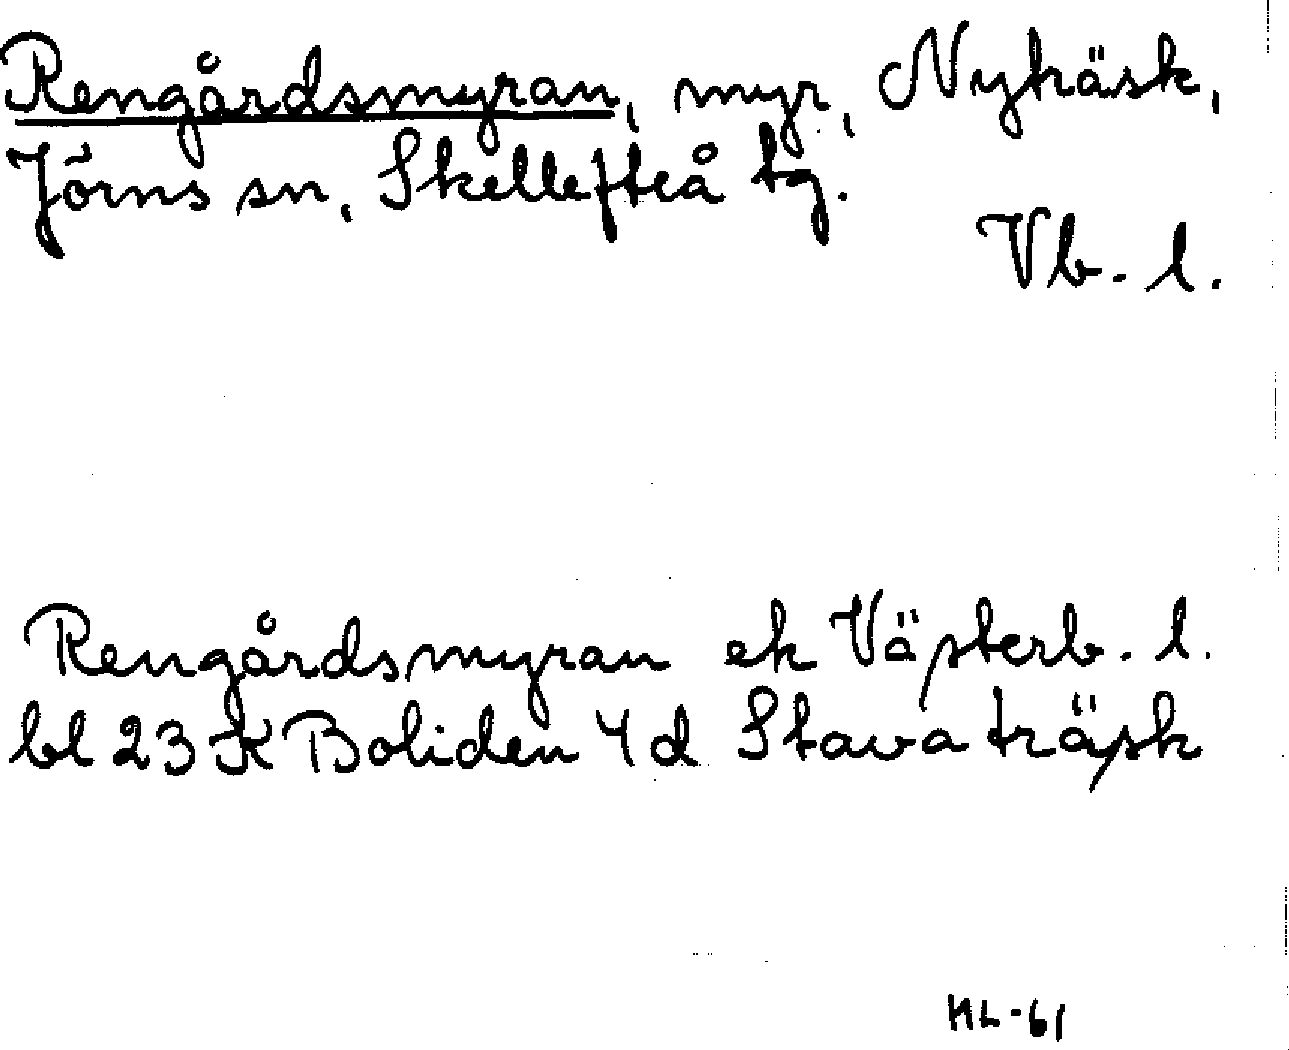 Rengårdsmyran, myr, Nyträsk,
Jörns sn, Skellefteå tg.
Vb. l.
Rengårdsmyran ek Västerb. l.
bl 23 K Boliden 4 d Stavaträsk
HL-61